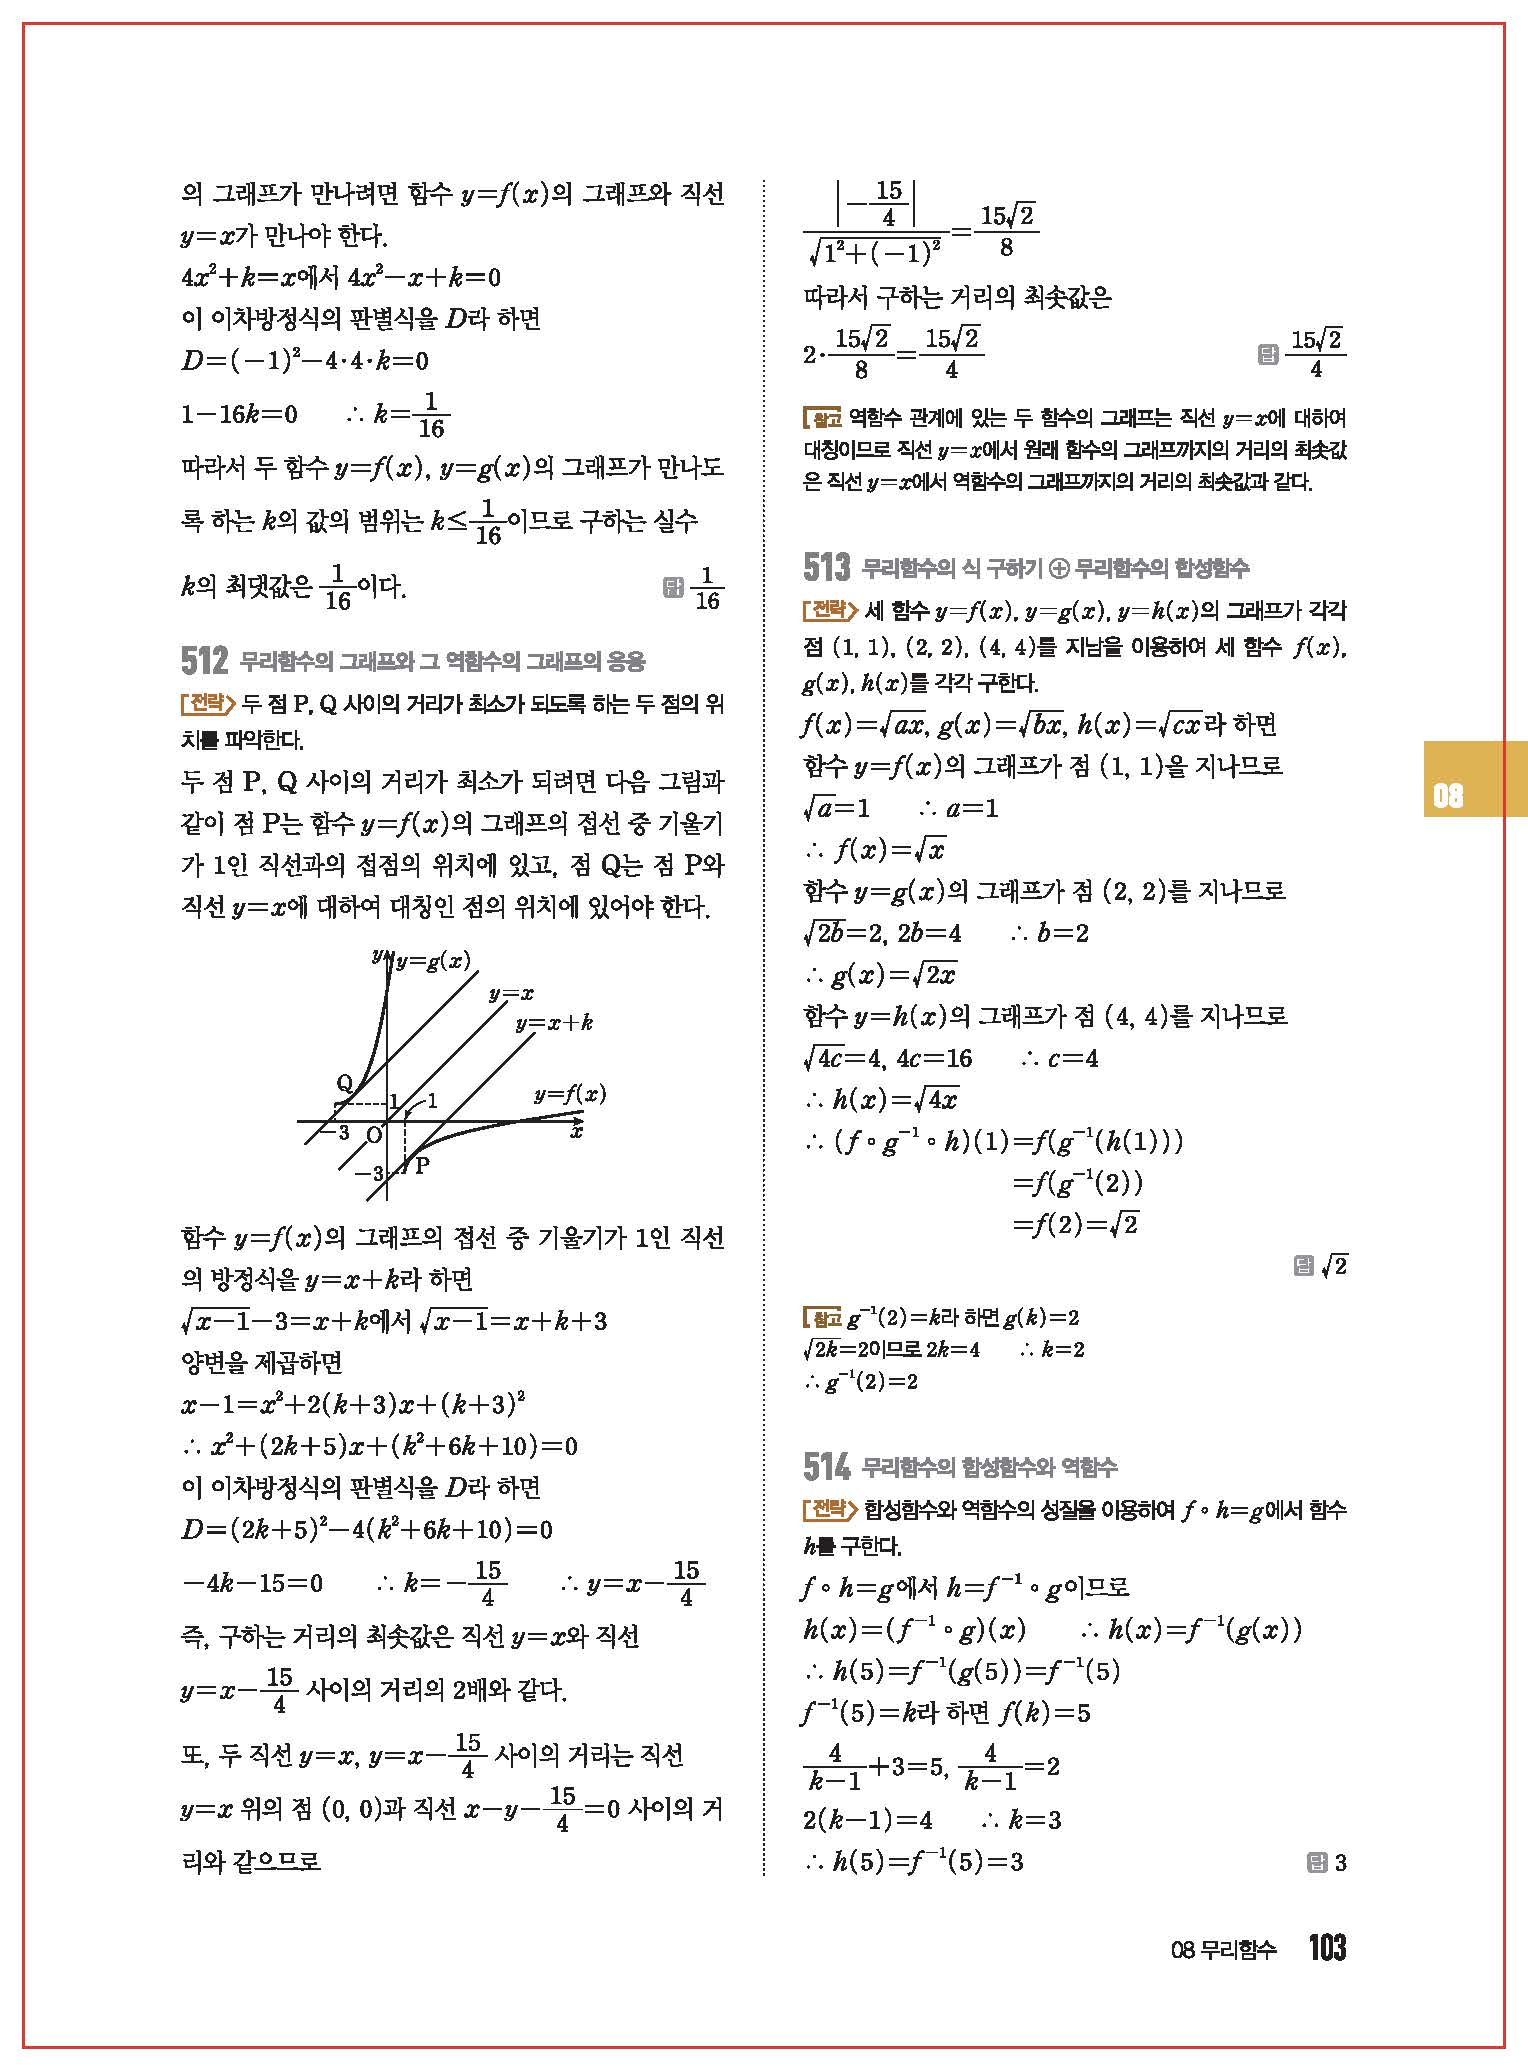 의 그래프가 만나려면 함수 y=f(x)의 그래프와 직선
y=x가 만나야 한다.
4x²+k=x에서 4x²-x+k=0
이 이차방정식의 판별식을 D라 하면
D=(-1)²-4·4·k=0
1-16k=0 ∴ k=1/16
따라서 두 함수 y=f(x), y=g(x)의 그래프가 만나도
록 하는 k의 값의 범위는 k≤1/16이므로 구하는 실수
k의 최댓값은 1/16이다. 답 1/16
512 무리함수의 그래프와 그 역함수의 그래프의 응용
전략 두 점 P, Q 사이의 거리가 최소가 되도록 하는 두 점의 위
치를 파악한다.
두 점 P, Q 사이의 거리가 최소가 되려면 다음 그림과
같이 점 P는 함수 y=f(x)의 그래프의 접선 중 기울기
가 1인 직선과의 접점의 위치에 있고, 점 Q는 점 P와
직선 y=x에 대하여 대칭인 점의 위치에 있어야 한다.
y y=g(x)
y=x
y=x+k
Q
1 1
y=f(x)
-3 O x
-3 P
함수 y=f(x)의 그래프의 접선 중 기울기가 1인 직선
의 방정식을 y=x+k라 하면
√(x-1)-3=x+k에서 √(x-1)=x+k+3
양변을 제곱하면
x-1=x²+2(k+3)x+(k+3)²
∴ x²+(2k+5)x+(k²+6k+10)=0
이 이차방정식의 판별식을 D라 하면
D=(2k+5)²-4(k²+6k+10)=0
-4k-15=0 ∴ k=-15/4 ∴ y=x-15/4
즉, 구하는 거리의 최솟값은 직선 y=x와 직선
y=x-15/4 사이의 거리의 2배와 같다.
또, 두 직선 y=x, y=x-15/4 사이의 거리는 직선
y=x 위의 점 (0, 0)과 직선 x-y-15/4=0 사이의 거
리와 같으므로
|-15/4|/√(1²+(-1)²)=15√2/8
따라서 구하는 거리의 최솟값은
2·15√2/8=15√2/4 답 15√2/4
참고 역함수 관계에 있는 두 함수의 그래프는 직선 y=x에 대하여
대칭이므로 직선 y=x에서 원래 함수의 그래프까지의 거리의 최솟값
은 직선 y=x에서 역함수의 그래프까지의 거리의 최솟값과 같다.
513 무리함수의 식 구하기 ⊕ 무리함수의 합성함수
전략 세 함수 y=f(x), y=g(x), y=h(x)의 그래프가 각각
점 (1, 1), (2, 2), (4, 4)를 지남을 이용하여 세 함수 f(x),
g(x), h(x)를 각각 구한다.
f(x)=√(ax), g(x)=√(bx), h(x)=√(cx)라 하면
함수 y=f(x)의 그래프가 점 (1, 1)을 지나므로
√a=1 ∴ a=1
∴ f(x)=√x
함수 y=g(x)의 그래프가 점 (2, 2)를 지나므로
√(2b)=2, 2b=4 ∴ b=2
∴ g(x)=√(2x)
함수 y=h(x)의 그래프가 점 (4, 4)를 지나므로
√(4c)=4, 4c=16 ∴ c=4
∴ h(x)=√(4x)
∴ (f∘g⁻¹∘h)(1)=f(g⁻¹(h(1)))
=f(g⁻¹(2))
=f(2)=√2
답 √2
참고 g⁻¹(2)=k라 하면 g(k)=2
√(2k)=2이므로 2k=4 ∴ k=2
∴ g⁻¹(2)=2
514 무리함수의 합성함수와 역함수
전략 합성함수와 역함수의 성질을 이용하여 f∘h=g에서 함수
h를 구한다.
f∘h=g에서 h=f⁻¹∘g이므로
h(x)=(f⁻¹∘g)(x) ∴ h(x)=f⁻¹(g(x))
∴ h(5)=f⁻¹(g(5))=f⁻¹(5)
f⁻¹(5)=k라 하면 f(k)=5
4/(k-1)+3=5, 4/(k-1)=2
2(k-1)=4 ∴ k=3
∴ h(5)=f⁻¹(5)=3 답 3
08
08 무리함수 103